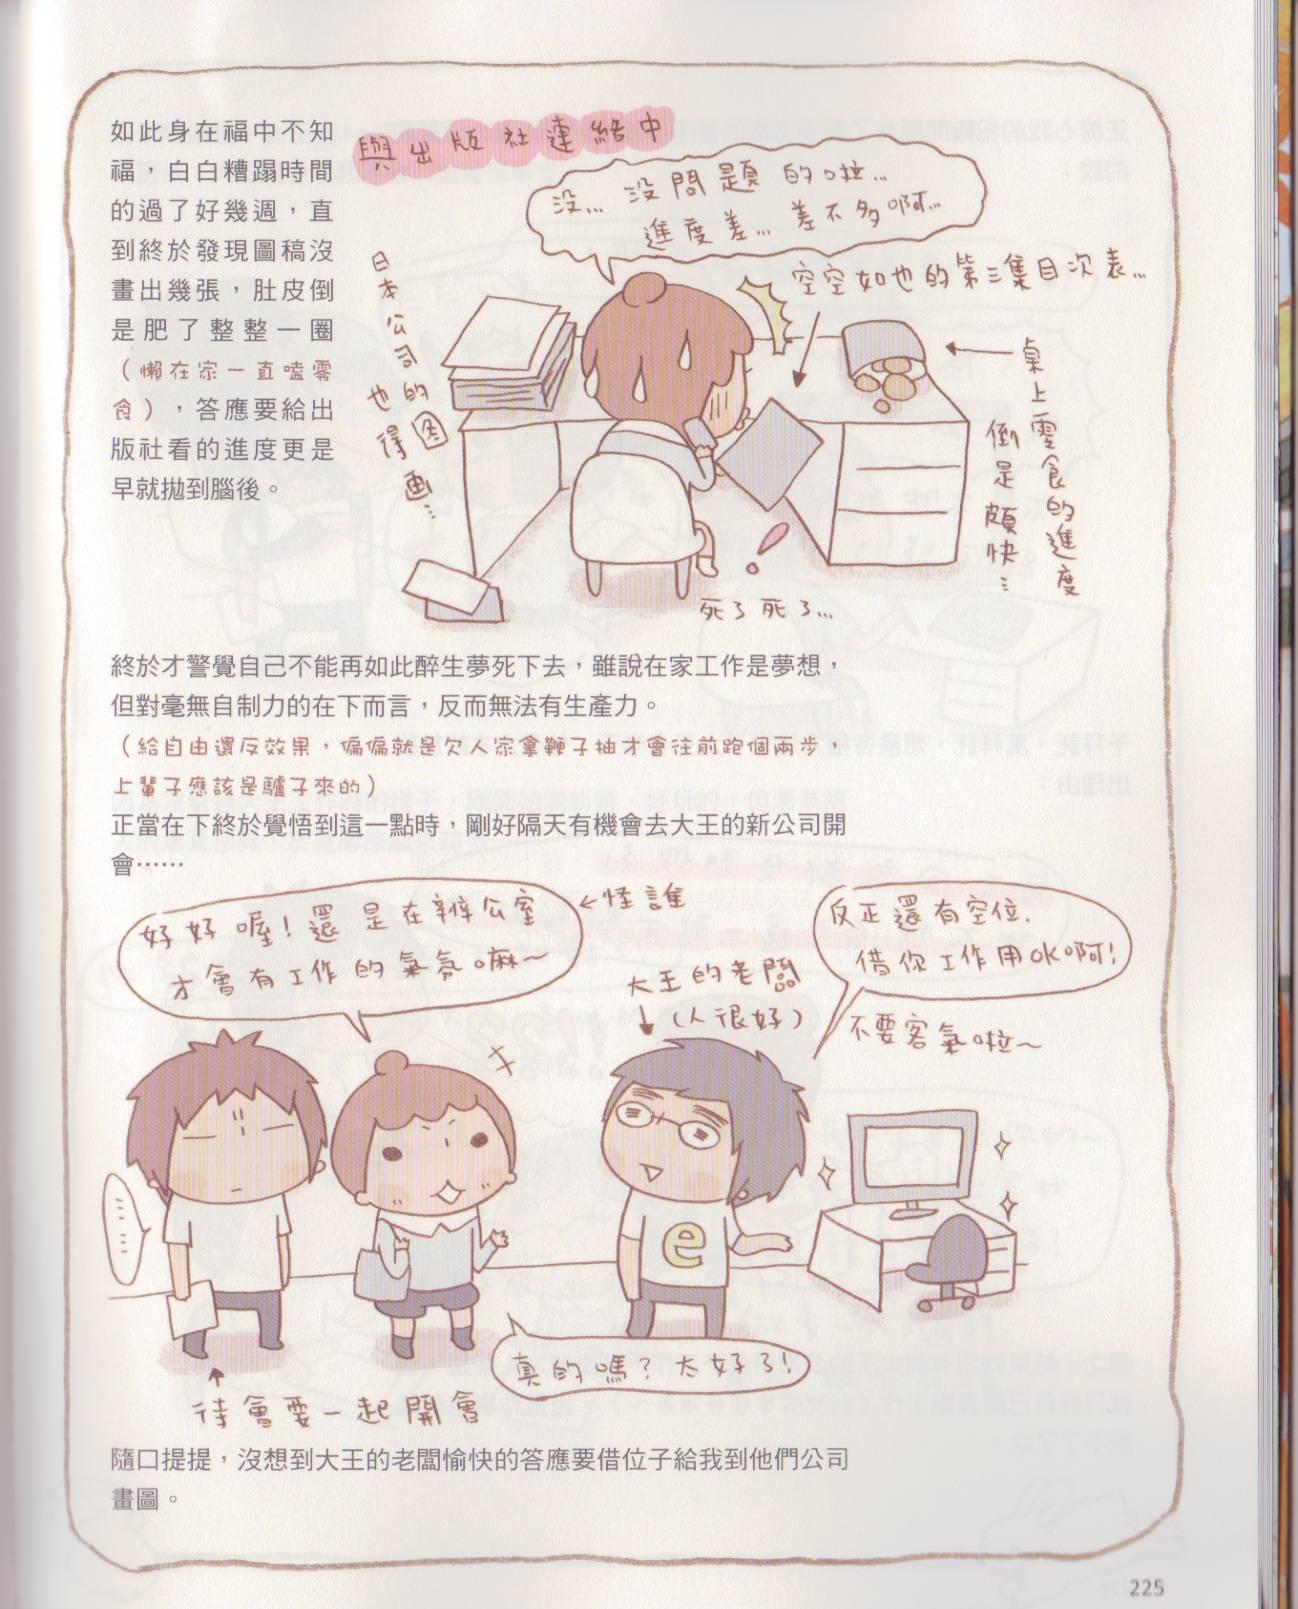 如此身在福中不知
福，白白糟蹋時間
的過了好幾週，直
到終於發現圖稿沒
畫出幾張，肚皮倒
是肥了整整一圈
（懶在家一直嗑零
食），答應要給出
版社看的進度更是
早就拋到腦後。
與出版社連絡中
沒…沒問題的啦…
進度差…差不多啊…
空空如也的第三集目次表…
日本公司的圖
也得画…
桌上零食的進度
倒是頗快…
死了死了…
終於才警覺自己不能再如此醉生夢死下去，雖說在家工作是夢想，
但對毫無自制力的在下而言，反而無法有生產力。
（給自由還反效果，偏偏就是欠人家拿鞭子抽才會往前跑個兩步，
上輩子應該是驢子來的）
正當在下終於覺悟到這一點時，剛好隔天有機會去大王的新公司開
會……
好好喔！還是在辦公室
才會有工作的氣氛嘛～
←怪誰
大王的老闆
（人很好）
反正還有空位.
借你工作用OK啊！
不要客氣啦～
……
e
真的嗎？太好了！
待會要一起開會
隨口提提，沒想到大王的老闆愉快的答應要借位子給我到他們公司
畫圖。
225